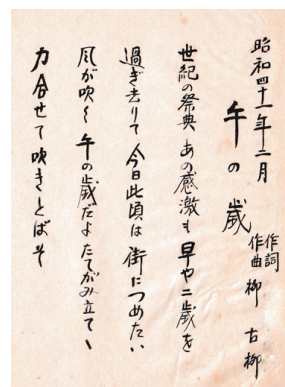 昭和四十一年二月
午の歳
作詞
作曲 柳 古柳
世紀の祭典 あの感激も 早や二歳を
過ぎ去りて 今日此頃は 街につめたい
風が吹く 午の歳だよ たてがみ立てヽ
力合せて吹きとばそ